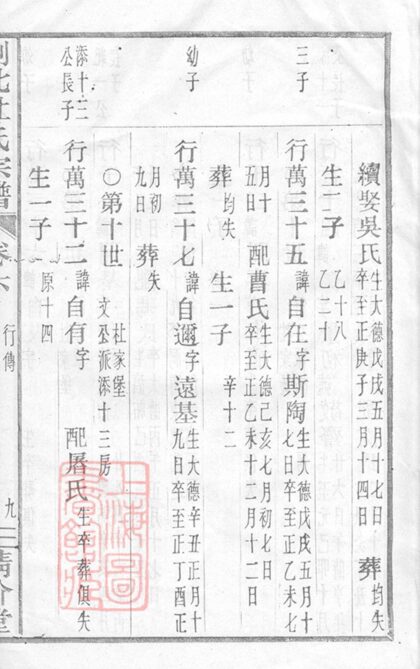 續娶吳氏 生大德戊戌五月十七日卒至正庚子三月十四日 葬 均失
生二子 乙十八 乙二十
三子 行萬三十五 諱自在字斯陶 生大德戊戌五月十七日卒至正乙未七
月十五日 配曹氏 生大德己亥七月初七日卒至正乙未十二月十二日
葬 均失 生一子 辛十二
幼子 行萬三十七 諱自邇字遠基 生大德辛丑正月十九日卒至正丁酉正
月初九日 葬 失
○第十世 杜家堡文公派添十三房
添十三公長子 行萬三十二 諱自有字 配屠氏 生卒葬俱失
生一子 原十四
北杜氏宗譜 卷六 行傳 九 清介堂
上海圖